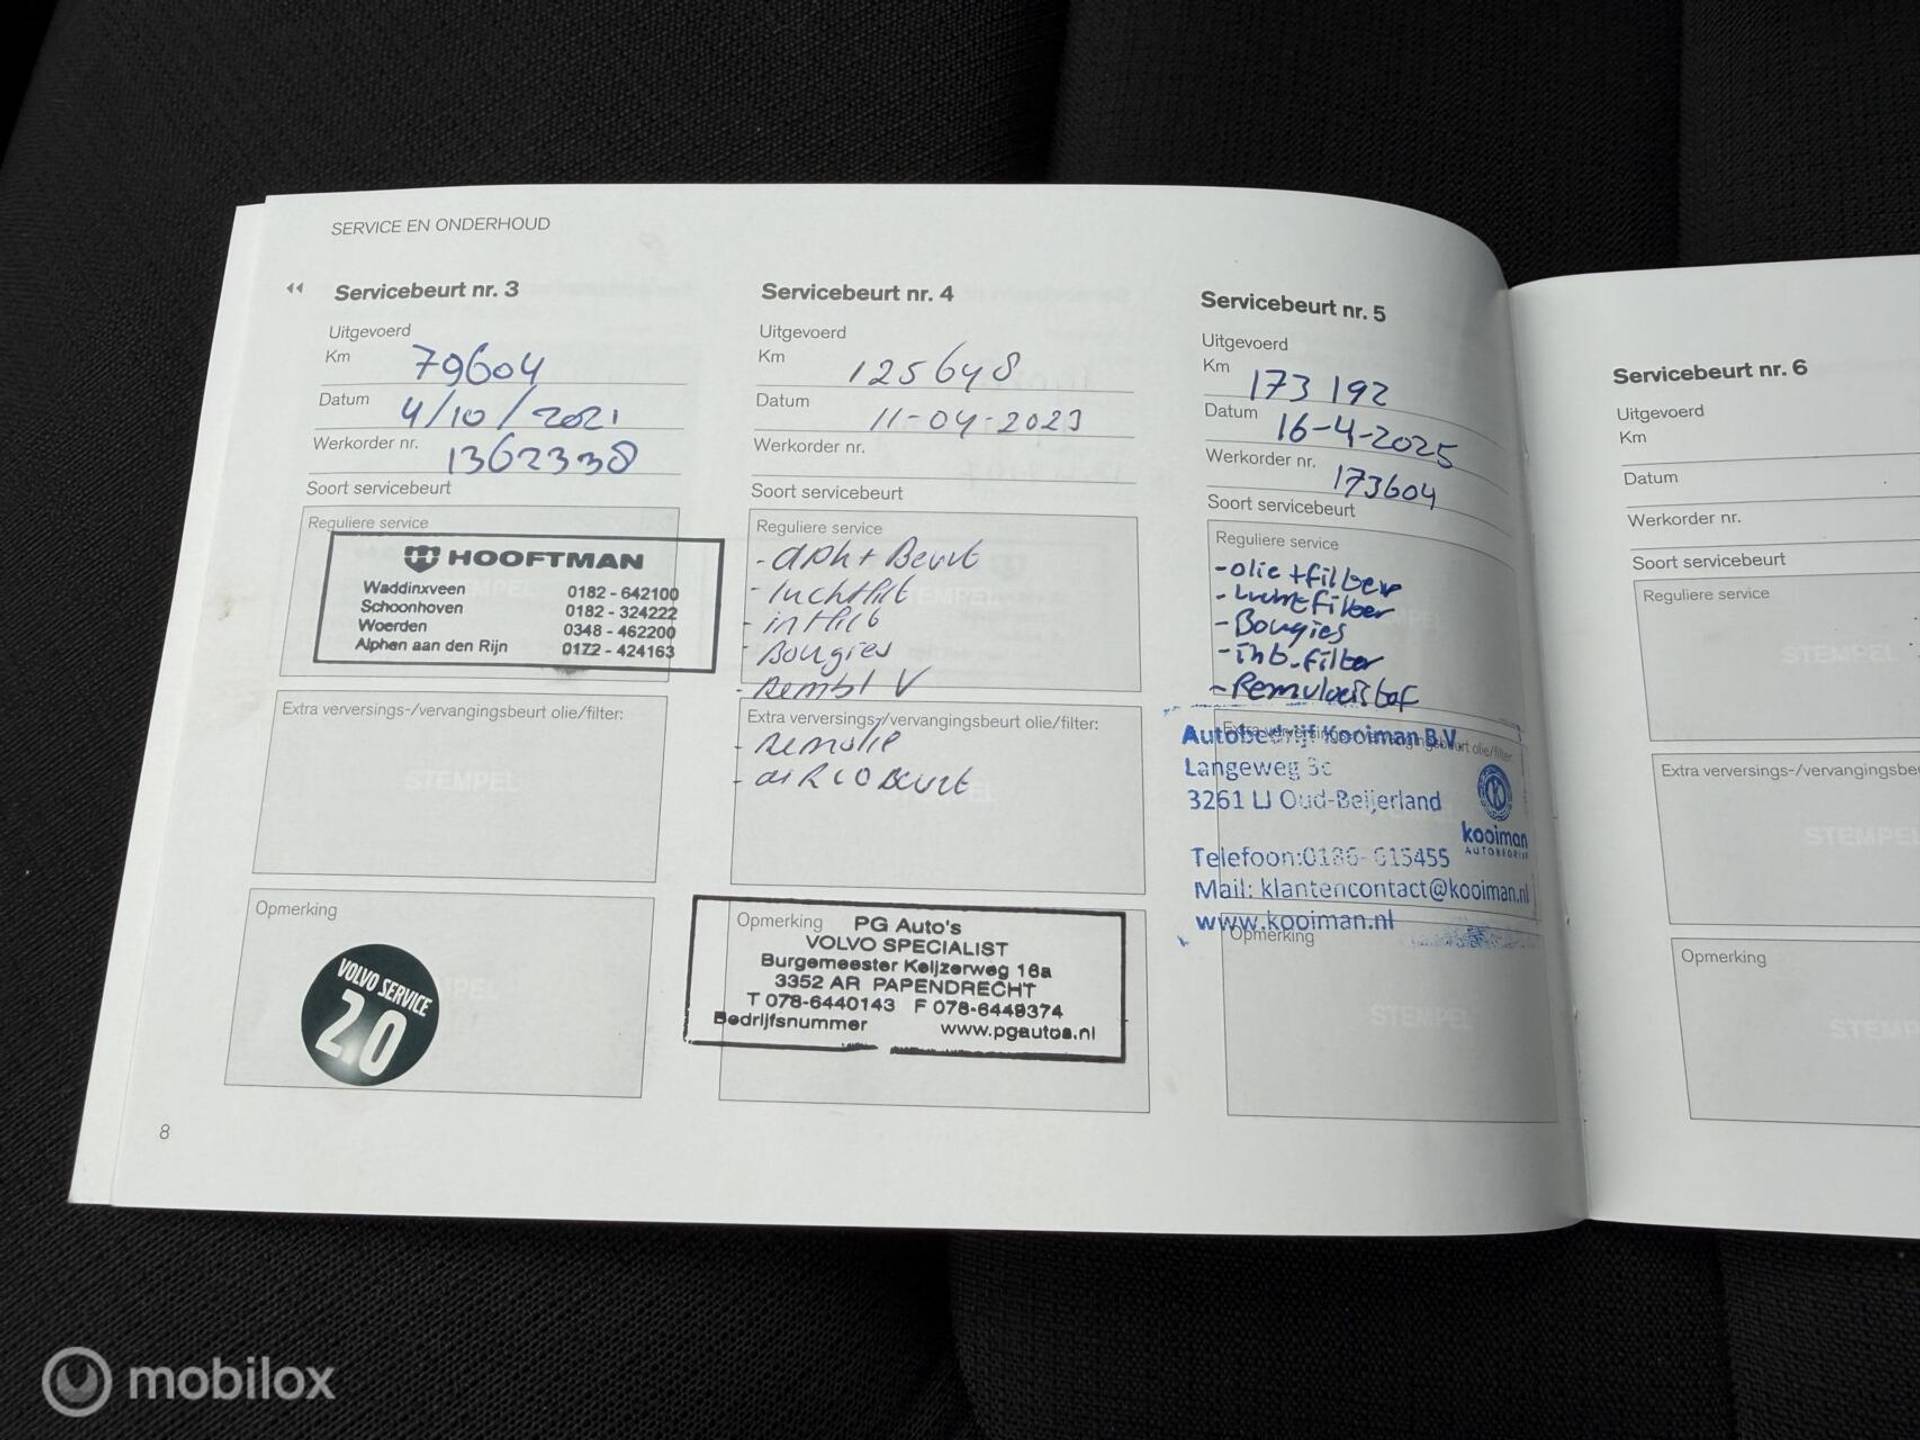 SERVICE EN ONDERHOUD
Servicebeurt nr. 3
Uitgevoerd
Km 79604
Datum 4/10/2021
Werkorder nr. 1362338
Soort servicebeurt
Reguliere service
HOOFTMAN
Waddinxveen 0182 - 642100
Schoonhoven 0182 - 324222
Woerden 0348 - 462200
Alphen aan den Rijn 0172 - 424163
Extra verversings-/vervangingsbeurt olie/filter:
STEMPEL
Opmerking
VOLVO SERVICE
2.0
8
Servicebeurt nr. 4
Uitgevoerd
Km 125648
Datum 11-04-2023
Werkorder nr.
Soort servicebeurt
Reguliere service
- apk + Beurt
- luchtfilt
- intfilt
- Bougies
- Rembl V
Extra verversings-/vervangingsbeurt olie/filter:
- Remolie
- airco Beurt
Opmerking
PG Auto's
VOLVO SPECIALIST
Burgemeester Keijzerweg 16a
3352 AR PAPENDRECHT
T 078-6440143 F 078-6449374
Bedrijfsnummer www.pgautos.nl
Servicebeurt nr. 5
Uitgevoerd
Km 173 192
Datum 16-4-2025
Werkorder nr. 173604
Soort servicebeurt
Reguliere service
- olie + filter
- Luchtfilter
- Bougies
- int. filter
- Remvloeistof
Autobedrijf Kooiman B.V.
Langeweg 3c
3261 LJ Oud-Beijerland
kooiman
AUTOBEDRIJF
Telefoon:0186- 615455
Mail: klantencontact@kooiman.nl
www.kooiman.nl
Opmerking
STEMPEL
Servicebeurt nr. 6
Uitgevoerd
Km
Datum
Werkorder nr.
Soort servicebeurt
Reguliere service
STEMPEL
Extra verversings-/vervangingsbe
STEMPEL
Opmerking
STEMP
mobilox